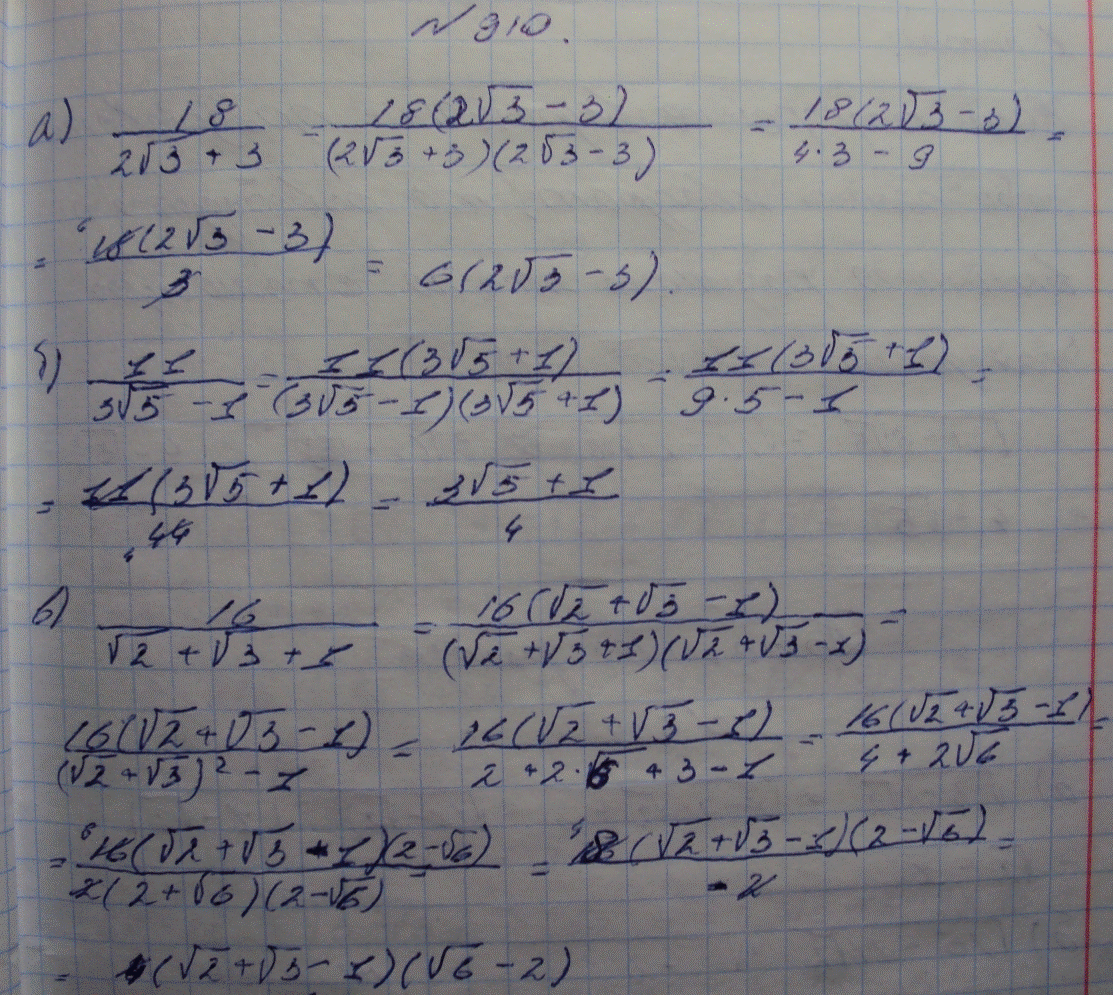 № 910.
а) 18/(2√3 + 3) = 18(2√3 - 3)/((2√3 + 3)(2√3 - 3)) = 18(2√3 - 3)/(4·3 - 9) =
= 18(2√3 - 3)/3 = 6(2√3 - 3).
б) 11/(3√5 - 1) = 11(3√5 + 1)/((3√5 - 1)(3√5 + 1)) = 11(3√5 + 1)/(9·5 - 1) =
= 11(3√5 + 1)/44 = (3√5 + 1)/4
в) 16/(√2 + √3 + 1) = 16(√2 + √3 - 1)/((√2 + √3 + 1)(√2 + √3 - 1)) =
16(√2 + √3 - 1)/((√2 + √3)² - 1) = 16(√2 + √3 - 1)/(2 + 2·√6 + 3 - 1) = 16(√2 + √3 - 1)/(4 + 2√6) =
= 16(√2 + √3 - 1)(2 - √6)/(2(2 + √6)(2 - √6)) = 8(√2 + √3 - 1)(2 - √6)/(-2) =
= 4(√2 + √3 - 1)(√6 - 2)